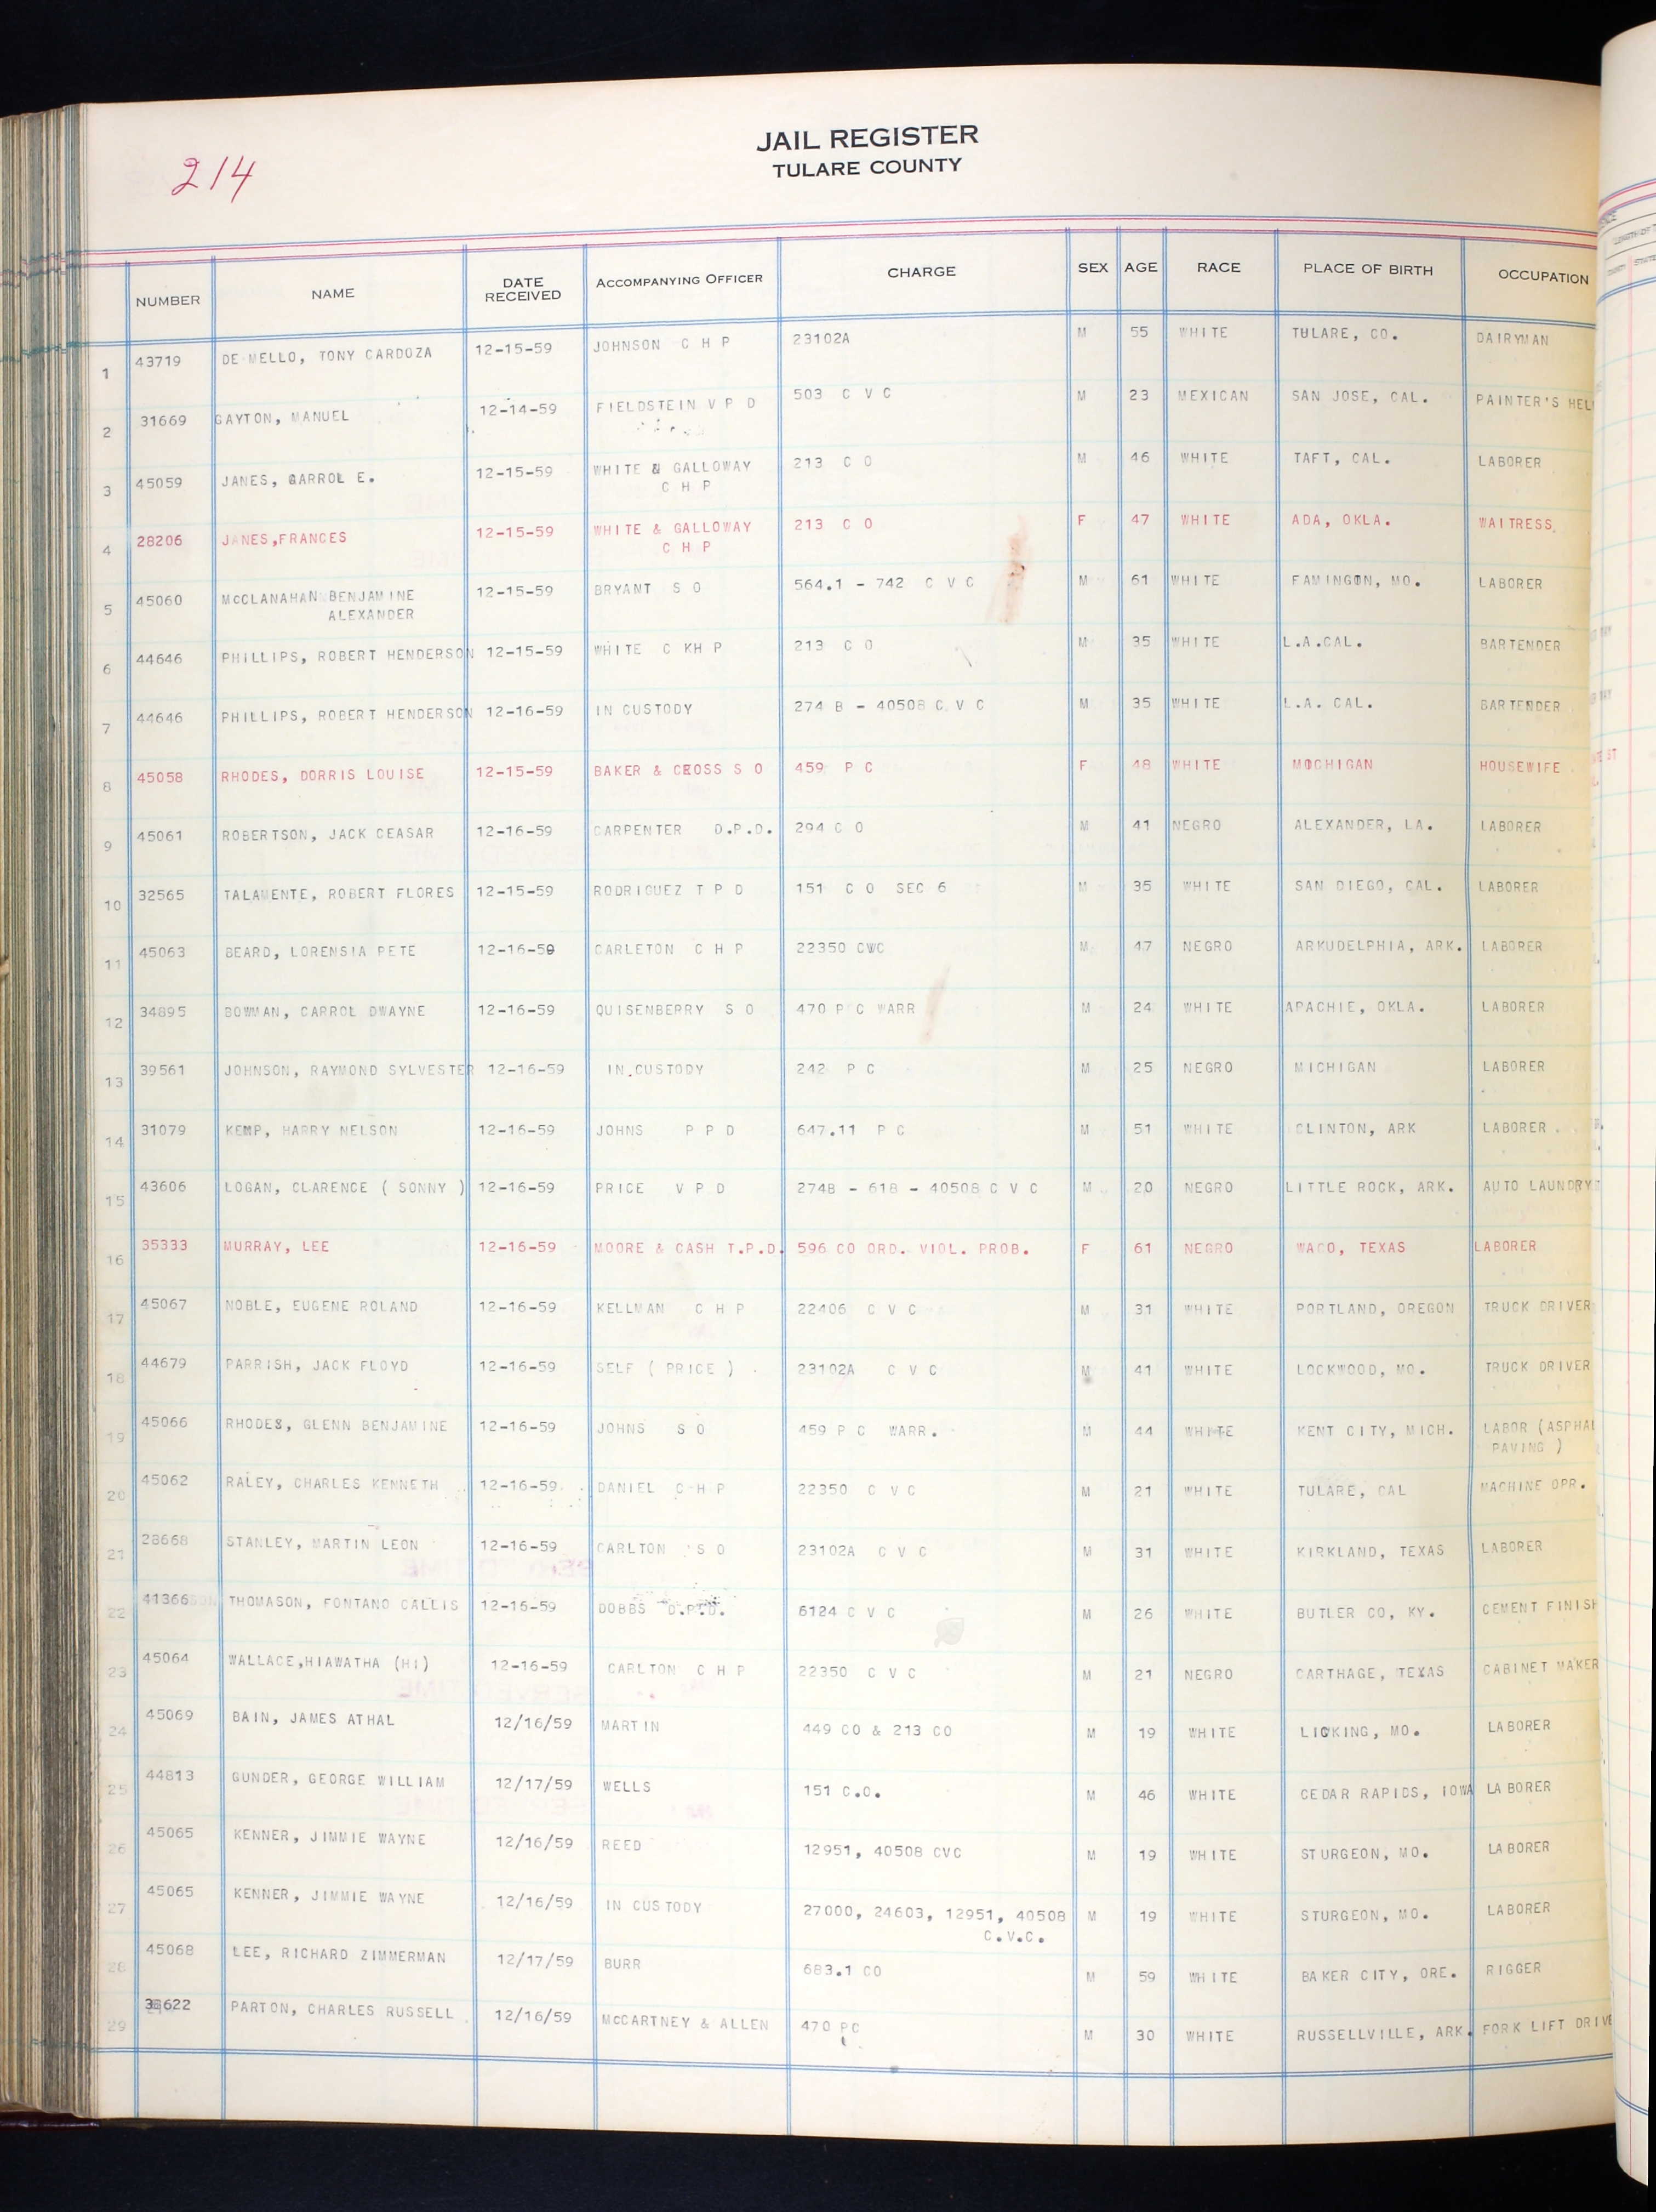 214
JAIL REGISTER
TULARE COUNTY
NUMBER NAME DATE RECEIVED ACCOMPANYING OFFICER CHARGE SEX AGE RACE PLACE OF BIRTH OCCUPATION
1 43719 DE MELLO, TONY CARDOZA 12-15-59 JOHNSON C H P 23102A M 55 WHITE TULARE, CO. DAIRYMAN
2 31669 GAYTON, MANUEL 12-14-59 FIELDSTEIN V P D 503 C V C M 23 MEXICAN SAN JOSE, CAL. PAINTER'S HEL
3 45059 JANES, GARROL E. 12-15-59 WHITE & GALLOWAY 213 C O M 46 WHITE TAFT, CAL. LABORER
C H P
4 28206 JANES,FRANCES 12-15-59 WHITE & GALLOWAY 213 C O F 47 WHITE ADA, OKLA. WAITRESS
C H P
5 45060 MCCLANAHAN BENJAMINE 12-15-59 BRYANT S O 564.1 - 742 C V C M 61 WHITE FAMINGTON, MO. LABORER
ALEXANDER
6 44646 PHILLIPS, ROBERT HENDERSON 12-15-59 WHITE C KH P 213 C O M 35 WHITE L.A.CAL. BARTENDER
7 44646 PHILLIPS, ROBERT HENDERSON 12-16-59 IN CUSTODY 274 B - 40508 C V C M 35 WHITE L.A. CAL. BARTENDER
8 45058 RHODES, DORRIS LOUISE 12-15-59 BAKER & CROSS S O 459 P C F 48 WHITE MOCHIGAN HOUSEWIFE
9 45061 ROBERTSON, JACK CEASAR 12-16-59 CARPENTER D.P.D. 294 C O M 41 NEGRO ALEXANDER, LA. LABORER
10 32565 TALAMENTE, ROBERT FLORES 12-15-59 RODRIGUEZ T P D 151 C O SEC 6 M 35 WHITE SAN DIEGO, CAL. LABORER
11 45063 BEARD, LORENSIA PETE 12-16-59 CARLETON C H P 22350 CWC M 47 NEGRO ARKUDELPHIA, ARK. LABORER
12 34895 BOWMAN, CARROL DWAYNE 12-16-59 QUISENBERRY S O 470 P C WARR M 24 WHITE APACHIE, OKLA. LABORER
13 39561 JOHNSON, RAYMOND SYLVESTER 12-16-59 IN CUSTODY 242 P C M 25 NEGRO MICHIGAN LABORER
14 31079 KEMP, HARRY NELSON 12-16-59 JOHNS P P D 647.11 P C M 51 WHITE CLINTON, ARK LABORER
15 43606 LOGAN, CLARENCE ( SONNY ) 12-16-59 PRICE V P D 274B - 618 - 40508 C V C M 20 NEGRO LITTLE ROCK, ARK. AUTO LAUNDRY
16 35333 MURRAY, LEE 12-16-59 MOORE & CASH T.P.D. 596 CO ORD. VIOL. PROB. F 61 NEGRO WACO, TEXAS LABORER
17 45067 NOBLE, EUGENE ROLAND 12-16-59 KELLMAN C H P 22406 C V C M 31 WHITE PORTLAND, OREGON TRUCK DRIVER
18 44679 PARRISH, JACK FLOYD 12-16-59 SELF ( PRICE ) 23102A C V C M 41 WHITE LOCKWOOD, MO. TRUCK DRIVER
19 45066 RHODES, GLENN BENJAMINE 12-16-59 JOHNS S O 459 P C WARR. M 44 WHITE KENT CITY, MICH. LABOR (ASPHAL
PAVING )
20 45062 RALEY, CHARLES KENNETH 12-16-59 DANIEL C H P 22350 C V C M 21 WHITE TULARE, CAL MACHINE OPR.
21 28668 STANLEY, MARTIN LEON 12-16-59 CARLTON S O 23102A C V C M 31 WHITE KIRKLAND, TEXAS LABORER
22 41366 THOMASON, FONTANO CALLIS 12-16-59 DOBBS D.P.D. 6124 C V C M 26 WHITE BUTLER CO, KY. CEMENT FINISH
23 45064 WALLACE,HIAWATHA (HI) 12-16-59 CARLTON C H P 22350 C V C M 21 NEGRO CARTHAGE, TEXAS CABINET MAKER
24 45069 BAIN, JAMES ATHAL 12/16/59 MARTIN 449 CO & 213 CO M 19 WHITE LICKING, MO. LABORER
25 44813 GUNDER, GEORGE WILLIAM 12/17/59 WELLS 151 C.O. M 46 WHITE CEDAR RAPIDS, IOWA LABORER
26 45065 KENNER, JIMMIE WAYNE 12/16/59 REED 12951, 40508 CVC M 19 WHITE STURGEON, MO. LABORER
27 45065 KENNER, JIMMIE WAYNE 12/16/59 IN CUSTODY 27000, 24603, 12951, 40508 M 19 WHITE STURGEON, MO. LABORER
C.V.C.
28 45068 LEE, RICHARD ZIMMERMAN 12/17/59 BURR 683.1 CO M 59 WHITE BAKER CITY, ORE. RIGGER
29 PARTON, CHARLES RUSSELL 12/16/59 MCCARTNEY & ALLEN 470 PC M 30 WHITE RUSSELLVILLE, ARK. FORK LIFT DRIVE